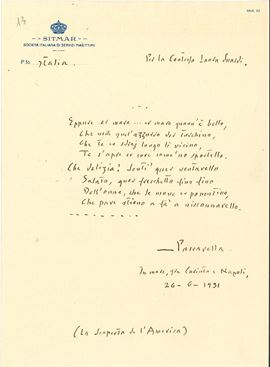 Mod. 82
13
SITMAR
SOCIETÀ ITALIANA DI SERVIZI MARITTIMI
P.fo Italia
Per la Contessa
. . .
Eppure er mare... er mare quann'è bello,
Che vedi quel'azzurro der turchino,
Che te ce sdraj longo lì vicino,
Te s'apre er core come 'no sportello.
Che delizia! Sentì quer ventarello
Salato, quer freschetto fino fino
Dell'onne, che le move er ponentino,
Che pare stieno a fà a nisconnarello.
Pascarella
In mare, fra e Napoli,
26-6-1931
(La Scoperta de l'America)